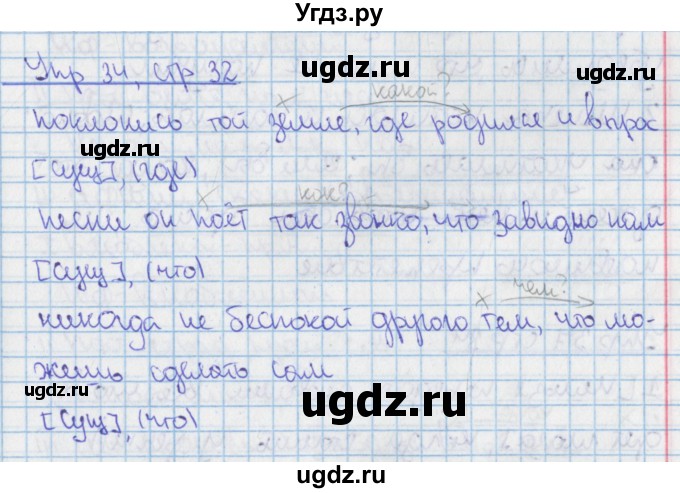 Угдз.ру
Упр 34, стр 32
ugdz.ru
ugdz.ru
какой?
поклонись той земле, где родился и впрос
ugdz.ru
[сущ], (где)
как?
песни он поёт так звонко, что завидно нам
[сущ], (что)
чем?
никогда не беспокой другого тем, что мо-
жешь сделать сам
ugdz.ru
ugdz.ru
[сущ], (что)
ugdz.ru